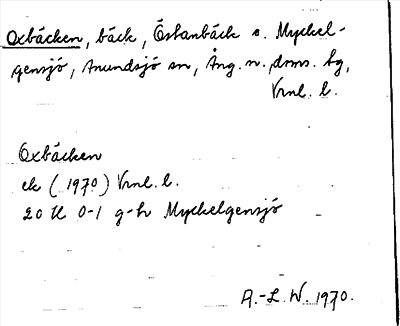 Oxbäcken, bäck, Östanbäck s. Myckel-
gensjö, Anundsjö sn, Ång. n. doms. hg,
Vrnl. l.
Oxbäcken
ek (1970) Vrnl. l.
20 H 0-1 g-h Myckelgensjö
A.-L. W. 1970.